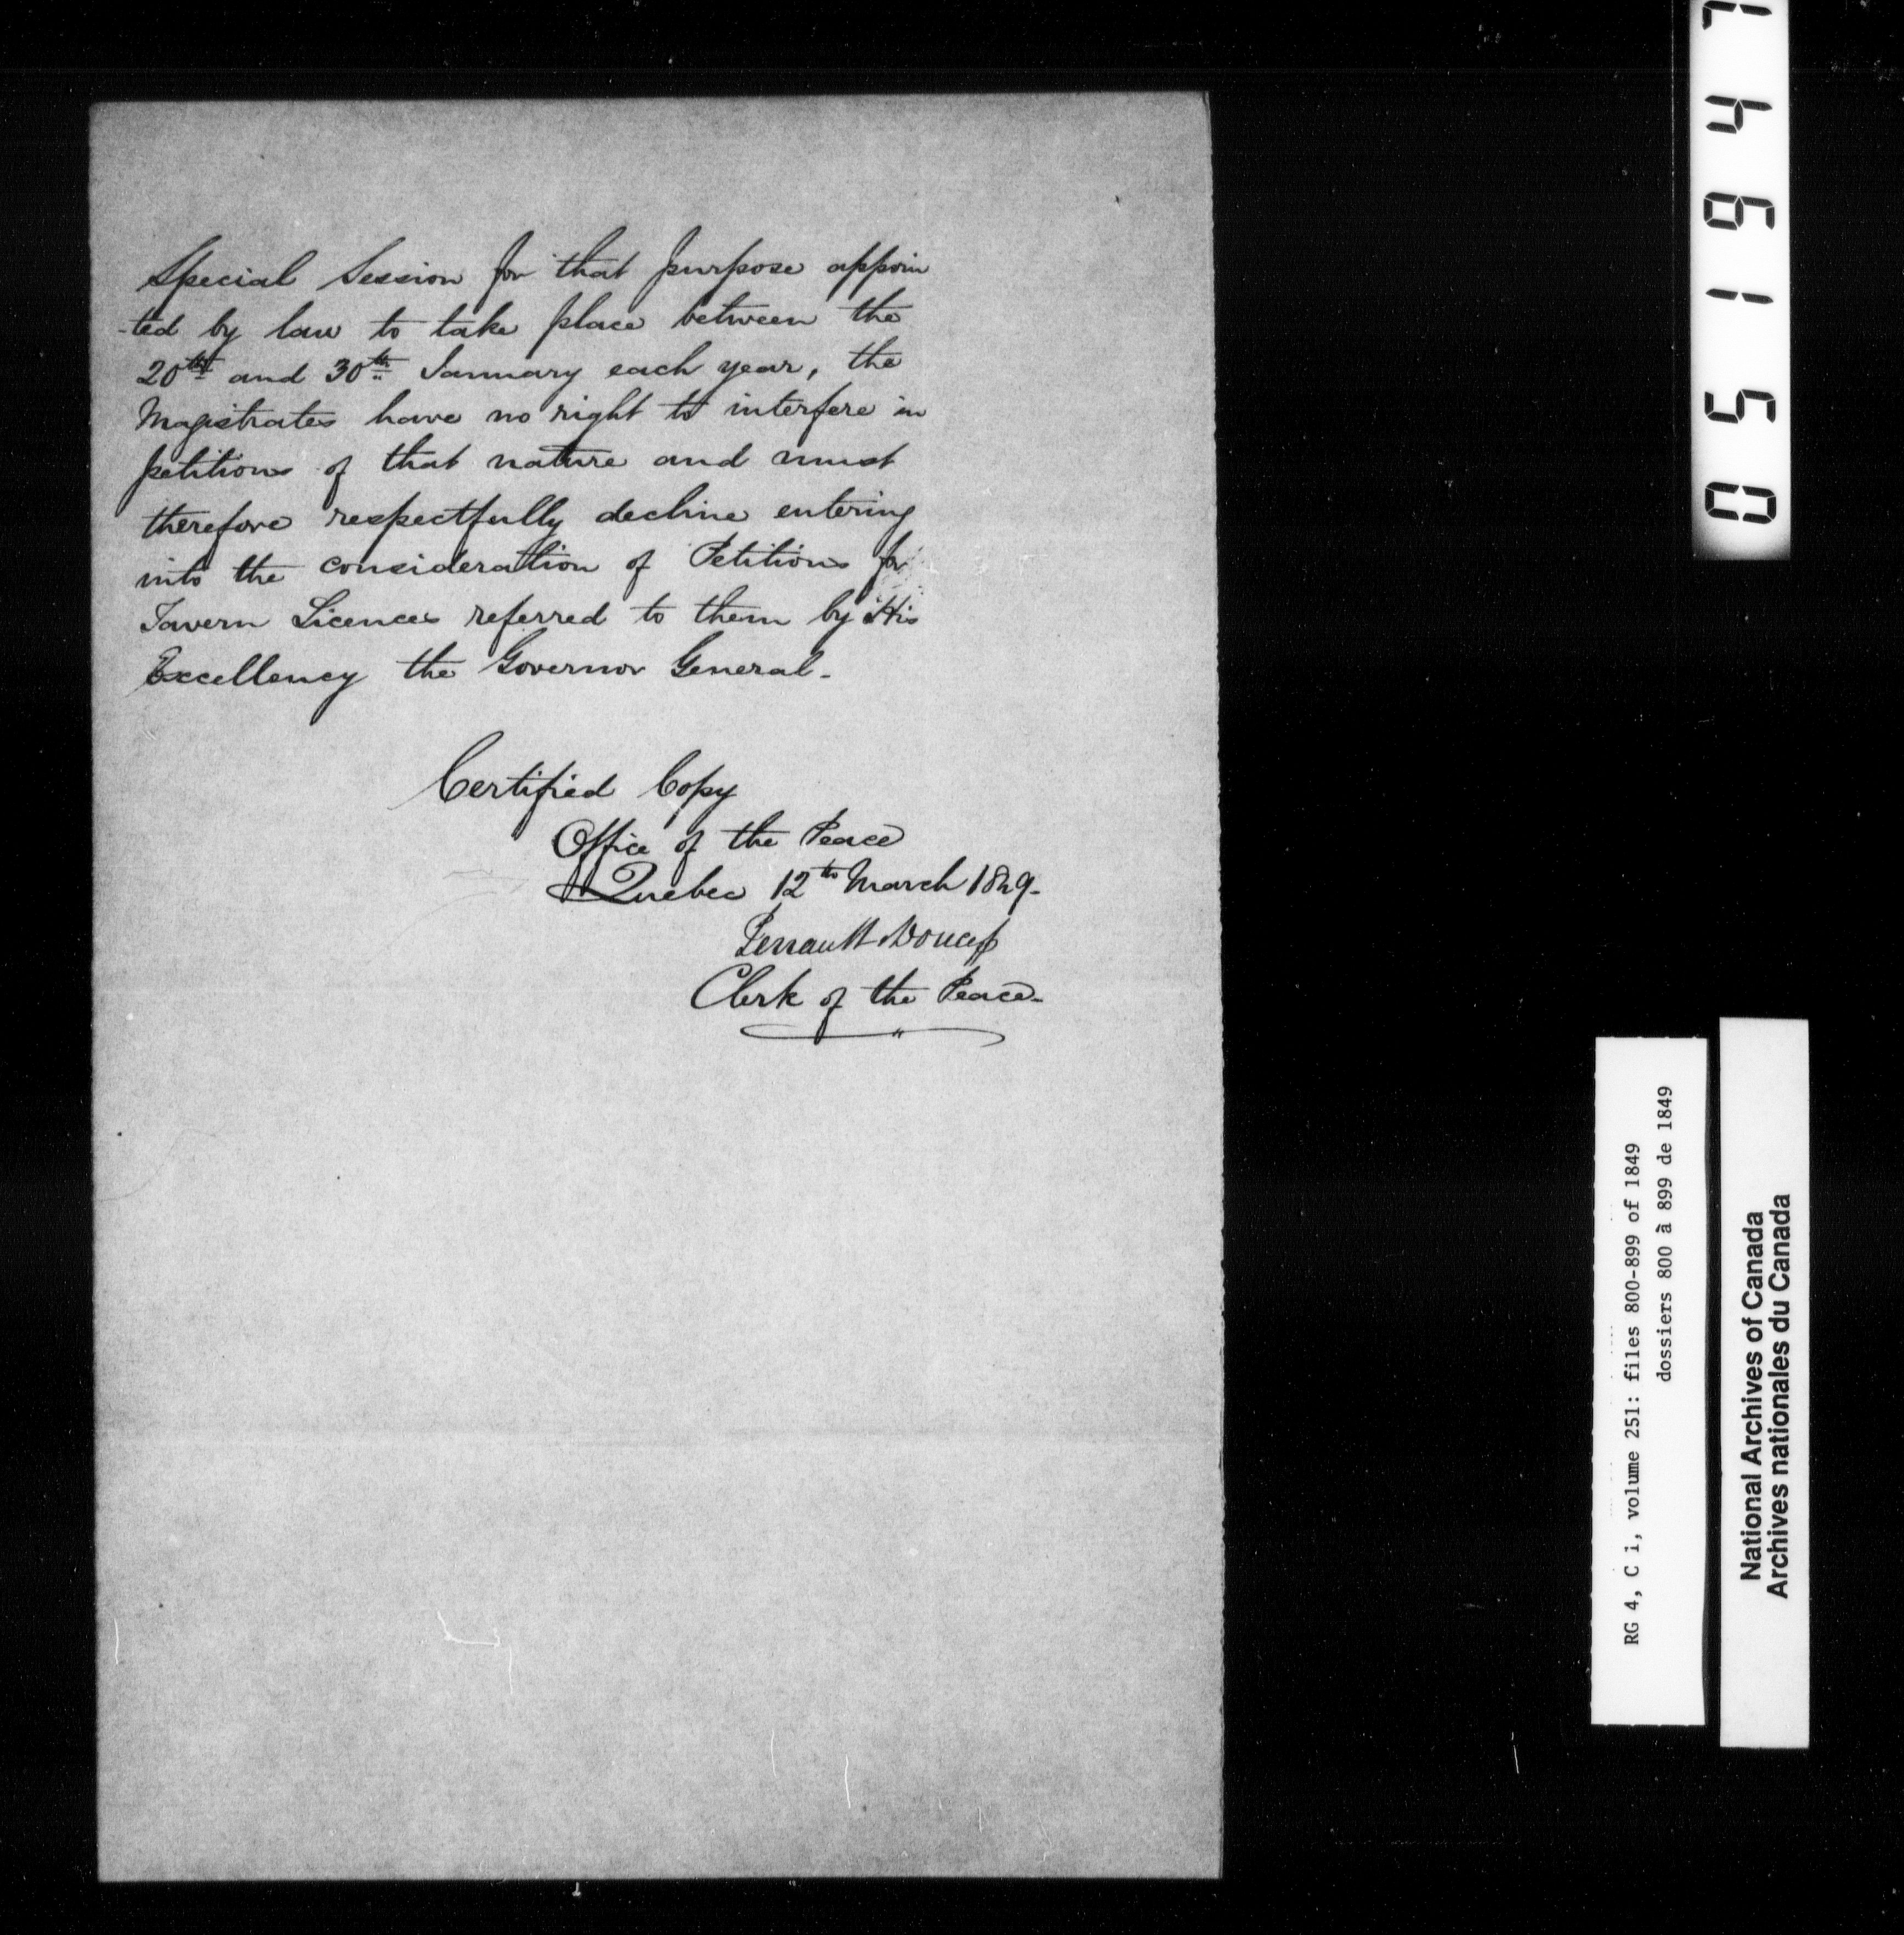 Special Session for that purpose appoin
-ted by law to take place between the
20th and 30th January each year, the
Magistrates have no right to interfere in
petitions of that nature and must
therefore respectfully decline entering
into the consideration of Petitions for
Tavern Licences referred to them by His
Excellency the Governor General.
Certified Copy
Office of the Peace
Quebec 12th March 1849.
Perrault & Doucet
Clerk of the Peace.
051947
RG 4, C i, volume 251: files 800-899 of 1849
dossiers 800 à 899 de 1849
National Archives of Canada
Archives nationales du Canada